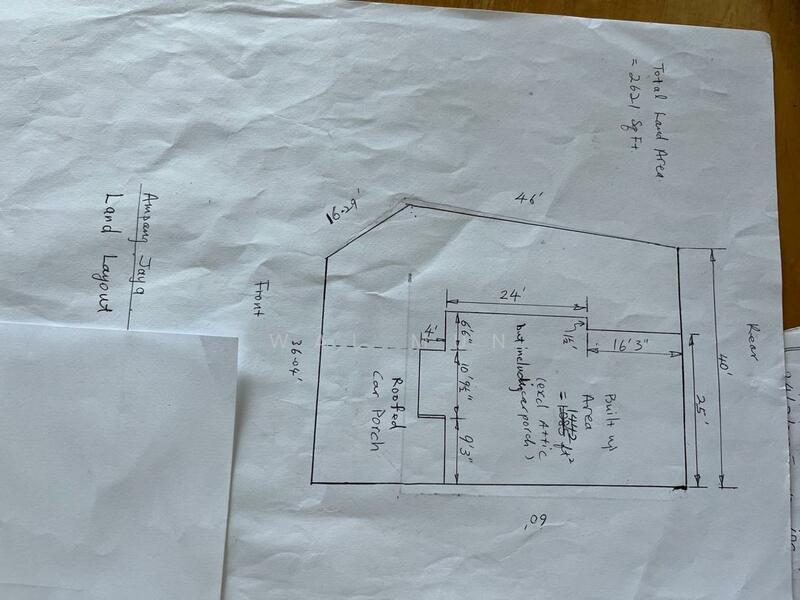 Total Land Area
= 2621 SqFt.
Ampang Jaya
Land Layout
Front
Rear
16.29'
46'
40'
25'
24'
16'3"
1½'
4'
6'6"
10'9½"
9'3"
36.04'
60'
Built up
Area
= 1442 ft²
(excl Attic
but including car porch)
Roofed
Car Porch